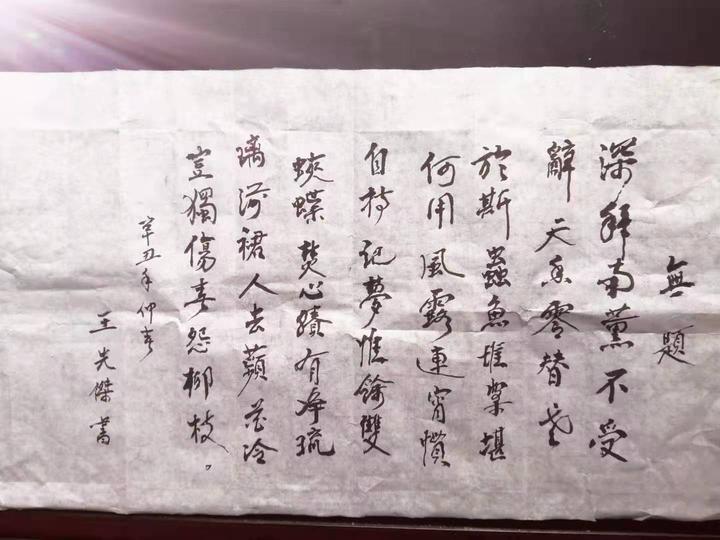 無題
深拜南薰不受
辭天香零替老
於斯蟲魚堆案堪
何用風露連宵慣
自持記夢惟餘雙
蛺蝶焚心賸有淨琉
璃湔裙人去蘋花冷
豈獨傷春怨柳枝。
辛丑年仲春
王光傑書